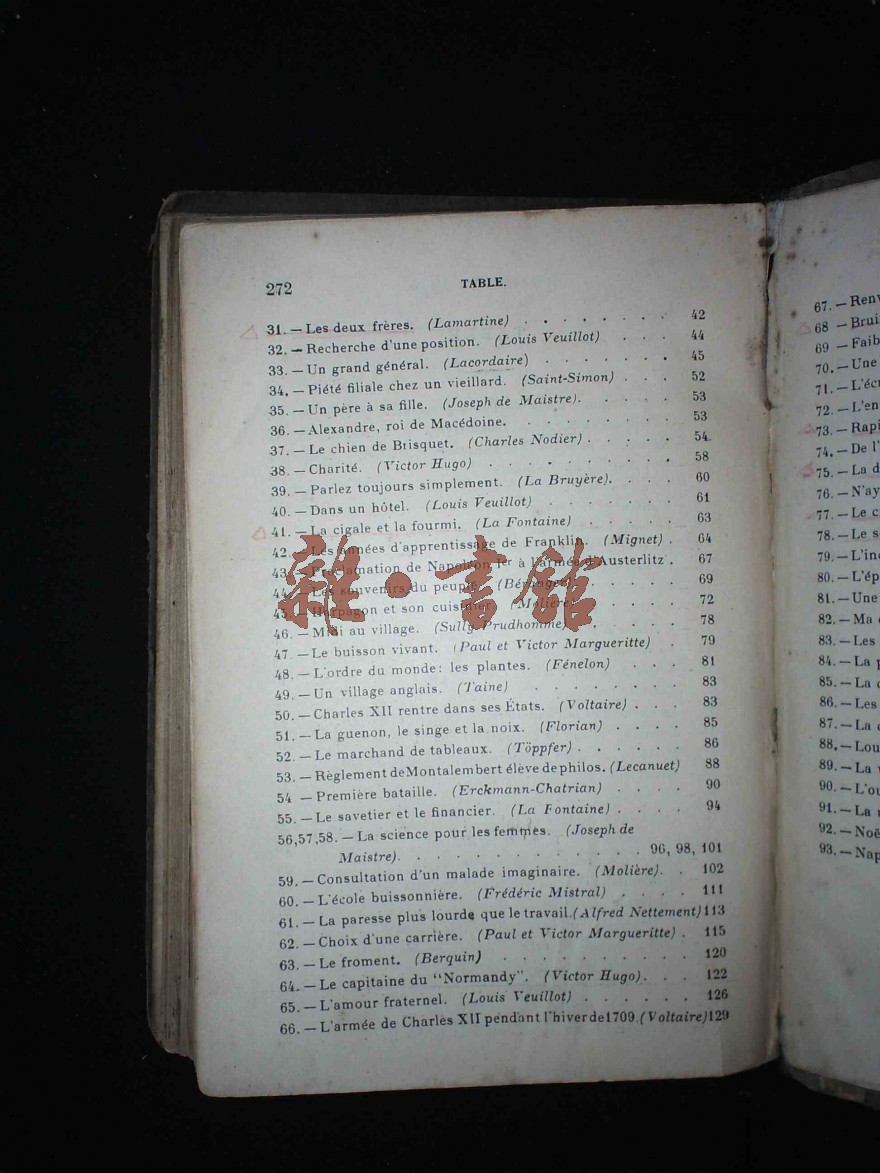 272
TABLE.
31. — Les deux frères. (Lamartine) . . . . . . . . 42
32. — Recherche d'une position. (Louis Veuillot) . . . 44
33. — Un grand général. (Lacordaire) . . . . . . . 45
34. — Piété filiale chez un vieillard. (Saint-Simon) . . . 52
35. — Un père à sa fille. (Joseph de Maistre). . . . . 53
36. — Alexandre, roi de Macédoine. . . . . . . . . 53
37. — Le chien de Brisquet. (Charles Nodier) . . . . . 54
38. — Charité. (Victor Hugo) . . . . . . . . . . 58
39. — Parlez toujours simplement. (La Bruyère). . . . 60
40. — Dans un hôtel. (Louis Veuillot) . . . . . . . 61
41. — La cigale et la fourmi. (La Fontaine) . . . . . 63
42. — Les années d'apprentissage de Franklin. (Mignet) . 64
43. — Proclamation de Napoléon Ier à l'armée d'Austerlitz . 67
44. — Les souvenirs du peuple. (Béranger) . . . . . 69
45. — Harpagon et son cuisinier. (Molière) . . . . . 72
46. — Midi au village. (Sully Prudhomme) . . . . . 78
雜·書館
47 — Le buisson vivant. (Paul et Victor Margueritte) . 79
48. — L'ordre du monde: les plantes. (Fénelon) . . . 81
49. — Un village anglais. (Taine) . . . . . . . . 83
50. — Charles XII rentre dans ses États. (Voltaire) . . . 83
51. — La guenon, le singe et la noix. (Florian) . . . . 85
52. — Le marchand de tableaux. (Töppfer) . . . . . . 86
53. — Règlement de Montalembert élève de philos. (Lecanuet) 88
54 — Première bataille. (Erckmann-Chatrian) . . . . 90
55. — Le savetier et le financier. (La Fontaine) . . . . 94
56,57,58. — La science pour les femmes. (Joseph de
Maistre). . . . . . . . . . . . 96, 98, 101
59. — Consultation d'un malade imaginaire. (Molière). . 102
60. — L'école buissonnière. (Frédéric Mistral) . . . . 111
61. — La paresse plus lourde que le travail. (Alfred Nettement) 113
62. — Choix d'une carrière. (Paul et Victor Margueritte) . 115
63. — Le froment. (Berquin) . . . . . . . . . 120
64. — Le capitaine du "Normandy". (Victor Hugo). . . 122
65. — L'amour fraternel. (Louis Veuillot) . . . . . . 126
66. — L'armée de Charles XII pendant l'hiver de 1709. (Voltaire) 129
67. — 
68 — 
69 — 
70. — Une
71. — 
72. — 
73. — 
74. — De
75. — La
76. — 
77. — Le
78. — Le
79. — 
80. — 
81. — Une
82. — Ma
83. — Les
84. — La
85. — La
86. — Les
87. — La
88. — 
89. — La
90. — 
91. — La
92. — 
93. —